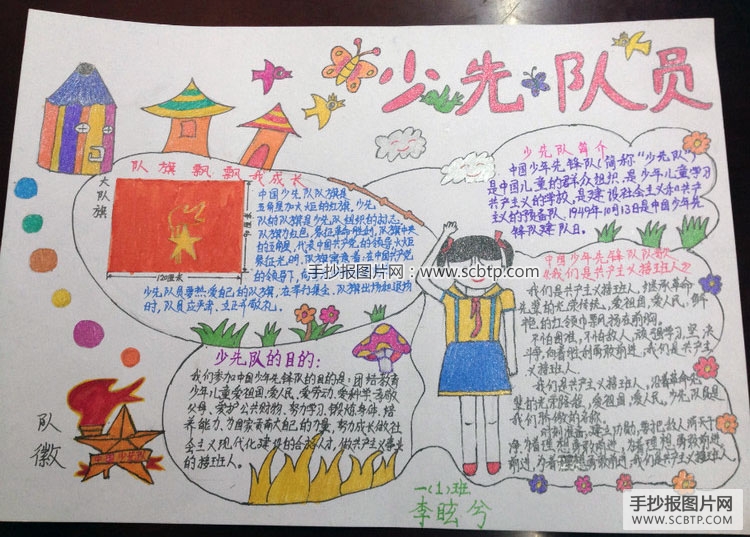 少先队员
队旗飘飘我成长
大队旗
120厘米
中国少先队队旗是
五角星加火炬的红旗，少先
队的队旗是少先队组织的标志。
队旗为红色，象征革命胜利，队旗中央
的五角星，代表中国共产党的领导，火炬
象征光明，
的领导下，向
少先队员要热爱自己的队旗，在举行集会、队旗出场和退场
时，队员应肃立、立正
少先队简介
中国少年先锋队（简称“少先队”）
是中国儿童的群众组织，是少年儿童学习
共产主义的学校，是建设社会主义和共产
主义的预备队，1949年10月13日是中国少年先
锋队建队日。
手抄报图片网：www.scbtp.com
中国少年先锋队队歌
《我们是共产主义接班人》
我们是共产主义接班人，继承革命
先辈的光荣传统，爱祖国，爱人民，鲜
艳的红领巾飘扬在前胸。
不怕困难，不怕敌人，顽强学习，坚决
斗争，向着胜利勇敢前进，我们是共产主
义接班人。
我们是共产主义接班人，沿着革命先
辈的光荣路程，爱祖国，爱人民，少先队员是
我们骄傲的名称。
时刻准备，建立功勋，要把敌人消灭干
净，为着理想勇敢前进，为着理想勇敢
前进，为着理想勇敢前进，我们是共产主义接班人。
少先队的目的：
我们参加中国少年先锋队的目的是：团结教育
少年儿童爱祖国、爱人民、爱劳动、爱科学、孝敬
父母，爱护公共财物，努力学习，锻炼身体，培
养能力，为国家贡献自己的力量，努力成长做社
会主义现代化建设的合格人才，做共产主义事业
的接班人。
队徽
中国少先队
一(1)班
李眩兮
手抄报图片网
www.SCBTP.com